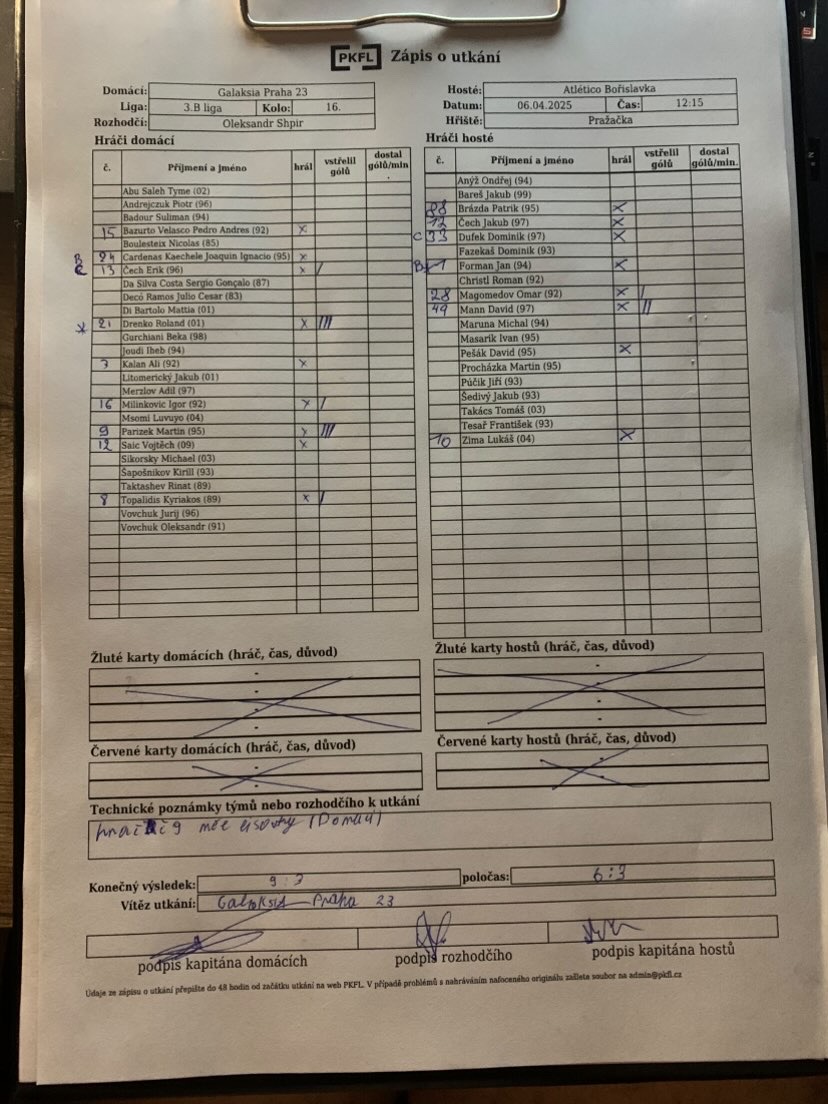 PKFL Zápis o utkání
Domácí: Galaksia Praha 23
Liga: 3.B liga Kolo: 16.
Rozhodčí: Oleksandr Shpir
Hosté: Atlético Bořislavka
Datum: 06.04.2025 Čas: 12:15
Hřiště: Pražačka
Hráči domácí
č. Příjmení a jméno hrál vstřelil gólů dostal gólů/min
Abu Saleh Tyme (02)
Andrejczuk Piotr (96)
Badour Suliman (94)
15 Bazurto Velasco Pedro Andres (92) x
Boulesteix Nicolas (85)
B 24 Cardenas Kaechele Joaquin Ignacio (95) x
C 13 Čech Erik (96) x /
Da Silva Costa Sergio Gonçalo (87)
Decó Ramos Julio Cesar (83)
Di Bartolo Mattia (01)
* 21 Drenko Roland (01) x ///
Gurchiani Beka (98)
Joudi Iheb (94)
7 Kalan Ali (92) x
Litomerický Jakub (01)
Merzlov Adil (97)
16 Milinkovic Igor (92) x /
Msomi Luvuyo (04)
9 Parizek Martin (95) x ///
12 Saic Vojtěch (09) x
Sikorsky Michael (03)
Šapošnikov Kirill (93)
Taktashev Rinat (89)
8 Topalidis Kyriakos (89) x /
Vovchuk Jurij (96)
Vovchuk Oleksandr (91)
Hráči hosté
č. Příjmení a jméno hrál vstřelil gólů dostal gólů/min.
Anýž Ondřej (94)
Bareš Jakub (99)
88 Brázda Patrik (95) x
12 Čech Jakub (97) x
C 33 Dufek Dominik (97) x
Fazekaš Dominik (93)
B 1 Forman Jan (94) x
Christl Roman (92)
28 Magomedov Omar (92) x /
49 Mann David (97) x //
Maruna Michal (94)
Masarik Ivan (95)
Pešák David (95) x
Procházka Martin (95)
Půčik Jiří (93)
Šedivý Jakub (93)
Takács Tomáš (03)
Tesař František (93)
10 Zima Lukáš (04) x
Žluté karty domácích (hráč, čas, důvod)
Žluté karty hostů (hráč, čas, důvod)
Červené karty domácích (hráč, čas, důvod)
Červené karty hostů (hráč, čas, důvod)
Technické poznámky týmů nebo rozhodčího k utkání
9 (Domácí)
Konečný výsledek: 9:3 poločas: 6:3
Vítěz utkání: Galaksia Praha 23
podpis kapitána domácích podpis rozhodčího podpis kapitána hostů
Údaje ze zápisu o utkání přepište do 48 hodin od začátku utkání na web PKFL. V případě problémů s nahráváním nafoceného originálu zašlete soubor na admin@pkfl.cz